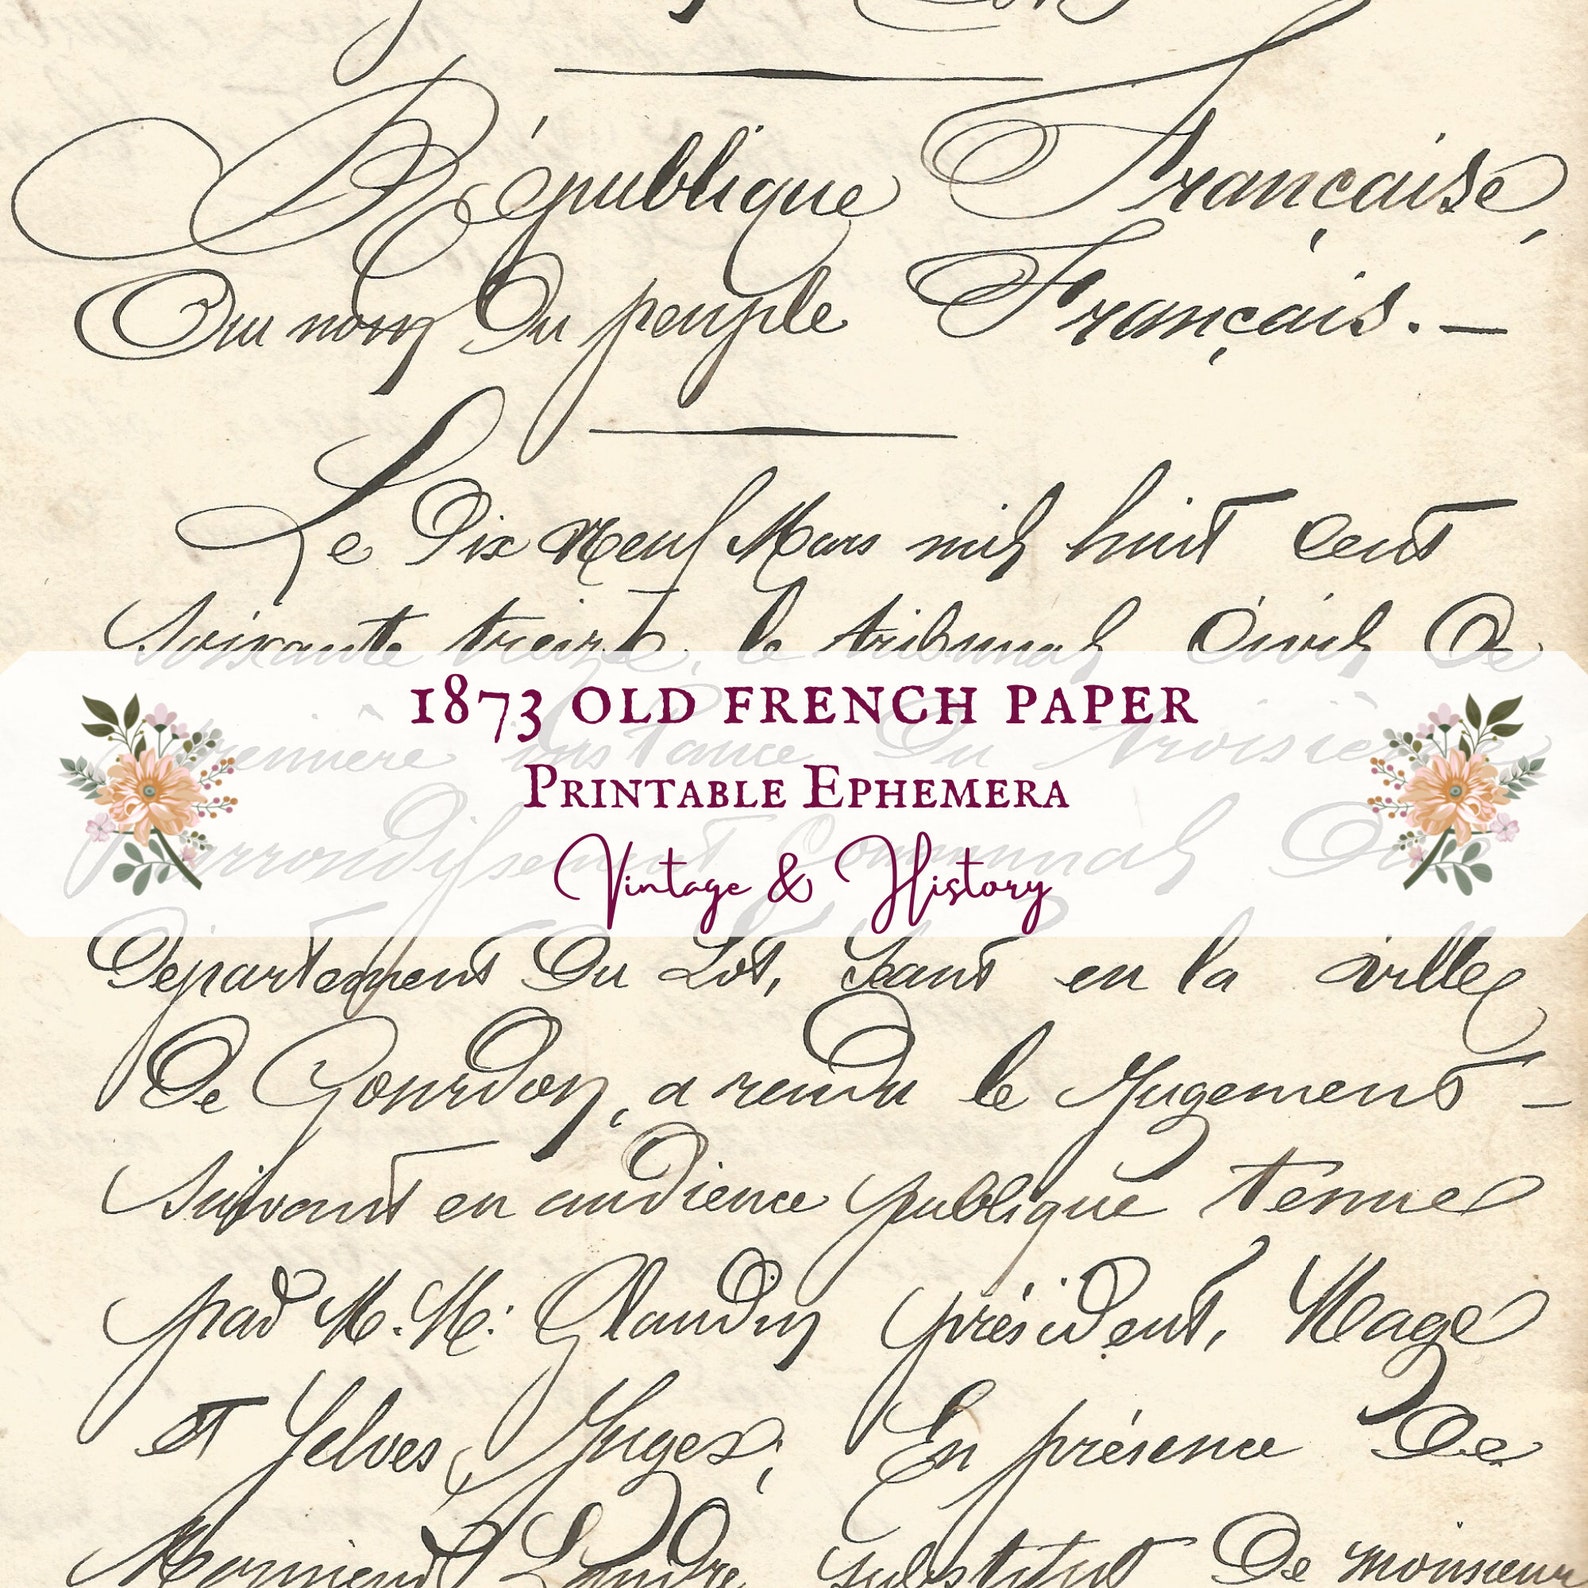 République Française,
Au nom Du peuple Français. —
Le Dix Neuf Mars mil huit cent
Soixante treize, le tribunal Civil De
première instance Du troisième
1873 OLD FRENCH PAPER
PRINTABLE EPHEMERA
arrondissement Communal Du
Vintage & History
Département Du Lot, Séant en la ville
De Gourdon, a rendu le Jugement —
Suivant en audience publique tenue
par M.M: Glaudin président, Mage
et Selves, Juges; En présence De
Monsieur Landre, substitut De monsieur